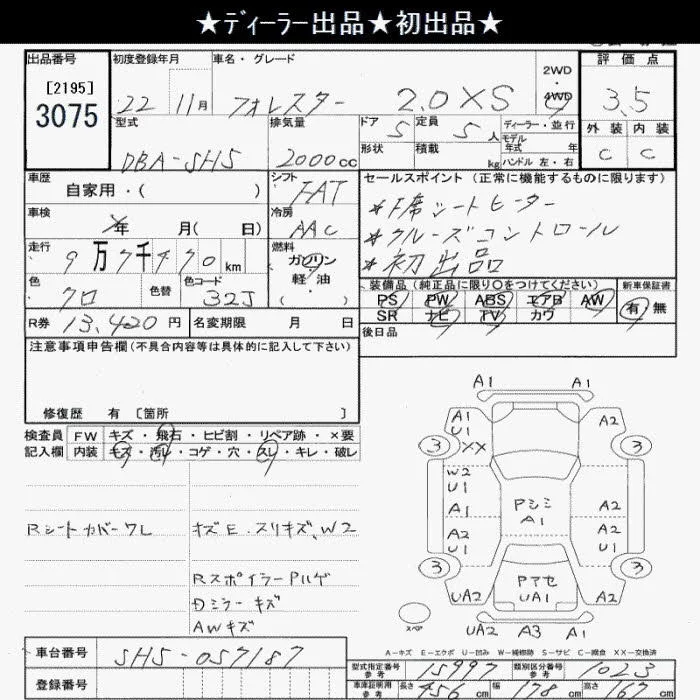 ★ディーラー出品★初出品★
出品番号 初度登録年月 車名・グレード 2WD・4WD 評価点
[2195]
3075
22 11月 フォレスター 2.0XS 3.5
型式 排気量 ドア 定員 ディーラー・並行 外装 内装
DBA-SH5 2000cc 5 5人 モデル年式 年 C C
形状 積載 kg ハンドル 左・右
車歴 シフト セールスポイント(正常に機能するものに限ります)
自家用・( ) FAT
車検 冷房 *F席シートヒーター
年 月( 日) AAC *クルーズコントロール
走行 燃料 *初出品
9万7千470km ガソリン
軽・油
・( )
色 色替 色コード 装備品(純正品に限り○をつけてください) 新車保証書
クロ 32J PS PW ABS エアB AW 有 無
SR ナビ TV カワ
R券 13,420円 名変期限 月 日 後日品
注意事項申告欄(不具合内容等は具体的に記入して下さい)
修復歴 有 [箇所 ]
検査員 FW キズ・飛石・ヒビ割・リペア跡・×要
記入欄 内装 キズ・汚レ・コゲ・穴・スレ・キレ・破レ
Rシートカバーワレ キズE.スリキズ、W2
RスポイラーPハゲ
Dミラーキズ
AWキズ
A1 A1
A1 U1 A2
3 XX 3
W2 U1
A1 PシミA1 A2
A2 U1 A2 U1
3 3
UA2 Pアセ UA1 UA2
スペア UA2 A3 A1
A-キズ E-エクボ U-凹み W-補修跡 S-サビ C-腐食 XX-交換済
車台番号 SH5-057187
型式指定番号 参考 15997 類別区分番号 参考 1023
登録番号
車庫証明用 参考 長さ 456cm 幅 178cm 高さ 167cm